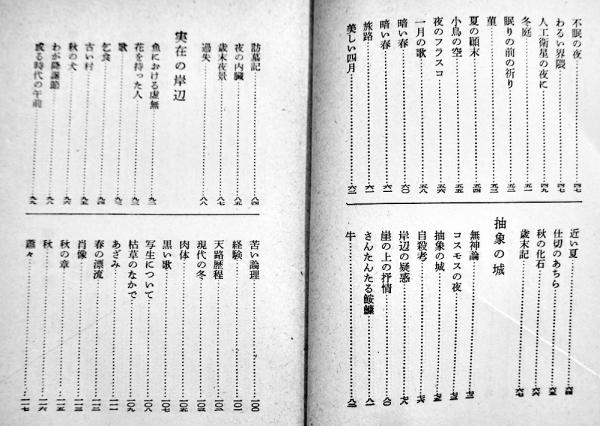 不眠の夜 四七
わるい界隈 四七
人工衛星の夜に 四九
冬庭
眠りの前の祈り
菫
夏の顚末 五四
小鳥の空 五五
夜のフラスコ
一月の歌 五八
暗い春 六〇
暗い春
旅路 六一
美しい四月 六三
近い夏 六四
仕切のあちら 六五
秋の化石 六六
歳末記 六七
抽象の城
無神論
コスモスの夜
抽象の城
自殺考
岸辺の疑惑
崖の上の抒情 八〇
さんたんたる鮟鱇 八一
牛 八三
訪墓記 八四
夜の内臓 八五
歳末夜景 八六
過失 八八
実在の岸辺
魚における虚無 九一
花を食った人
歌
乞食
古い村
秋の犬
わが降誕節
或る時代の午前
苦い論理 一〇〇
経験 一〇一
天路歴程
現代の冬
肉体 一〇五
黒い歌 一〇七
写生について 一〇八
枯草のなかで 一〇九
あざみ 一一一
春の漂流 一一二
肖像 一一三
秋の章 一一五
秋 一一六
蕭々 一一七